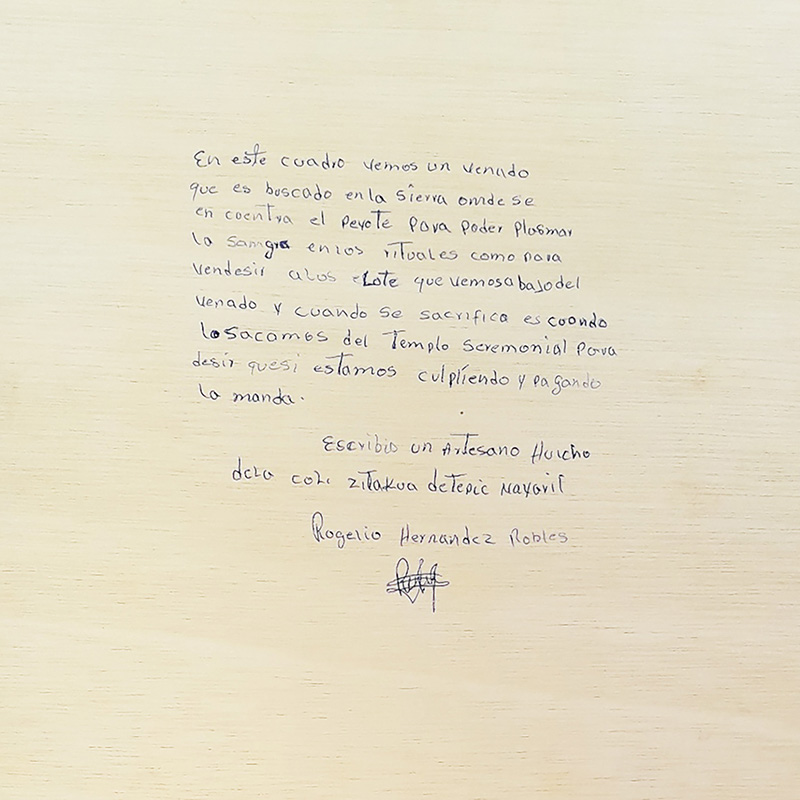 En este cuadro vemos un venado
que es buscado en la Sierra omde se
en coentra el peyote para poder plasmar
la samgra en los rituales como para
vendesir a los elote que vemos abajo del
venado y cuando se sacrifica es coando
lo sacamos del Templo Seremonial para
desir que si estamos culpliendo y pagando
la manda.
Escribio un Artesano Huicho
de la col. zitakua de Tepic Nayarit
Rogelio Hernandez Robles